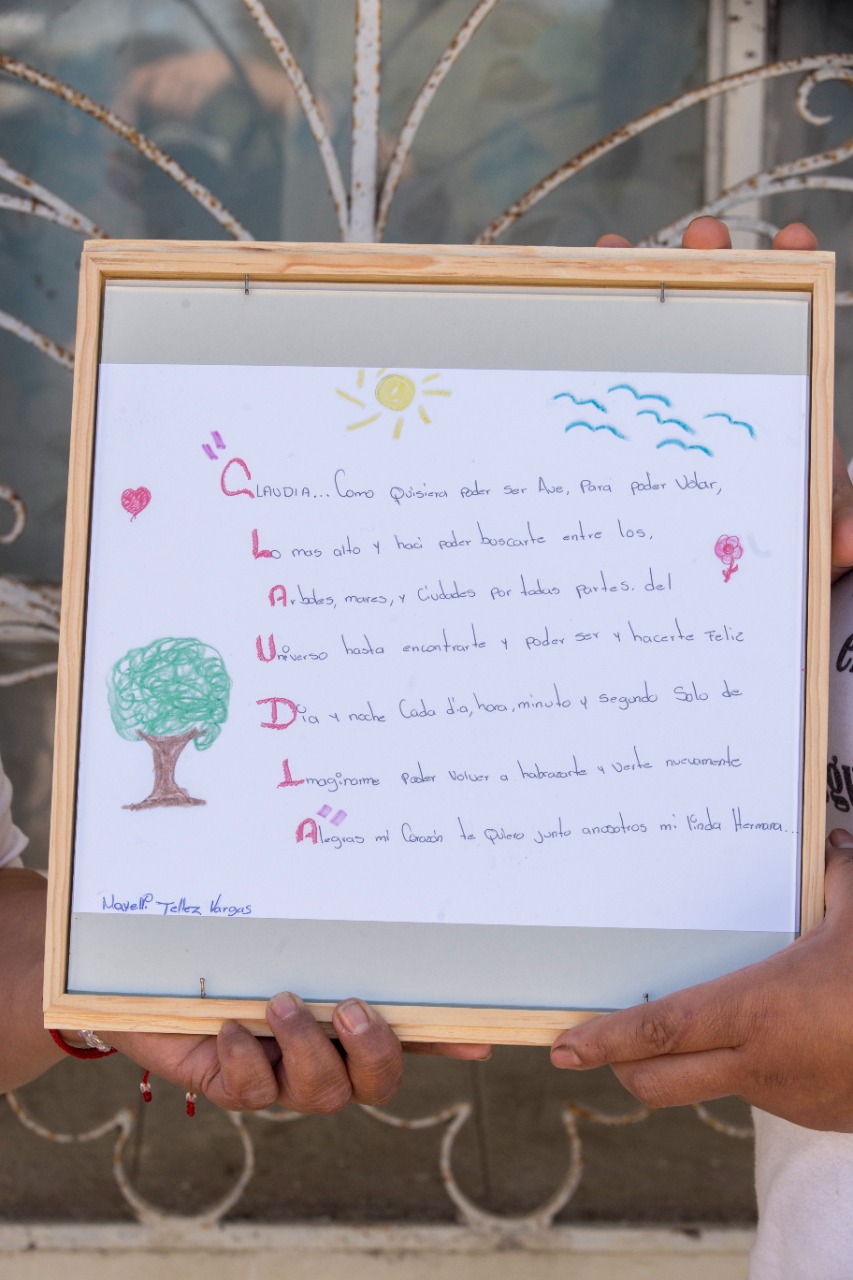 "CLAUDIA... Como quisiera poder ser Ave, para poder Volar,
Lo mas alto y haci poder buscarte entre los,
Arboles, mares, y Ciudades por todas partes. del
Universo hasta encontrarte y poder ser y hacerte Feliz
Dia y noche Cada dia, hora, minuto y segundo Solo de
Imaginarme poder volver a habrazarte y verte nuevamente
Alegras mi Corazón te quiero junto anosotros mi linda Hermana..."
Nayelli Tellez Vargas